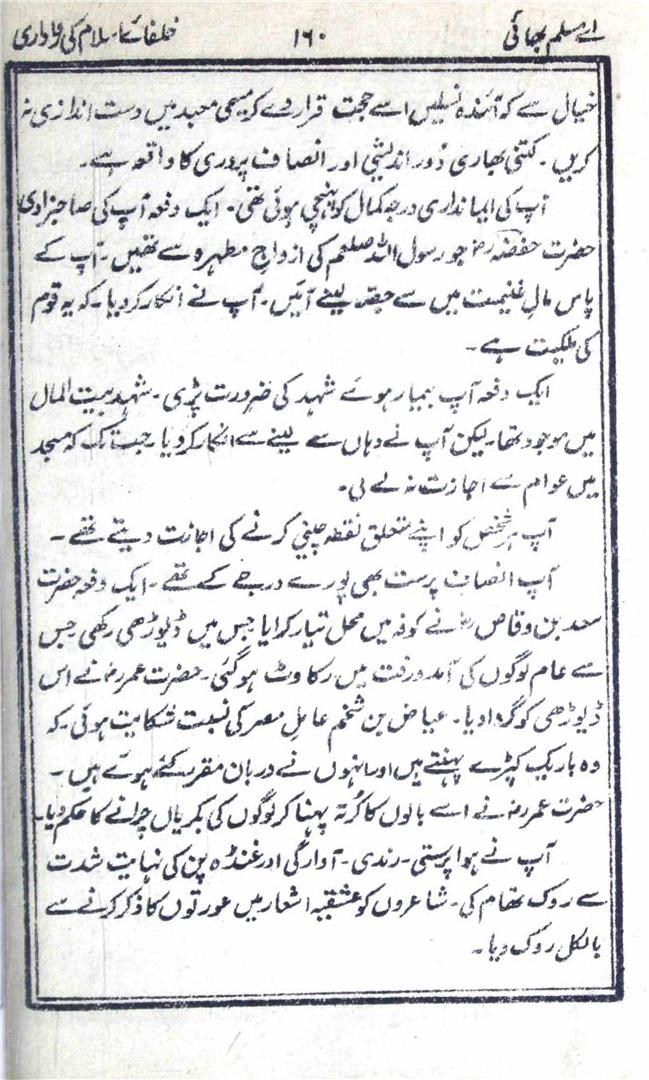 اے مسلم بھائی ۱۶۰ خلفائے اسلام کی رواداری
خیال سے کہ آئندہ نسلیں اسے حجت قرار دے کر مسیحی معبد میں دست اندازی نہ
کریں۔ کتنی بھاری دُور اندیشی اور انصاف پروری کا واقعہ ہے۔
آپ کی ایمانداری درجہ کمال کو پہنچی ہوئی تھی۔ ایک دفعہ آپ کی صاحبزادی
حضرت حفصہؓ جو رسول اللہ صلعم کی ازواج مطہرہ سے تھیں۔ آپ کے
پاس مالِ غنیمت میں سے حصّہ لینے آئیں۔ آپ نے انکار کر دیا۔ کہ یہ قوم
کی ملکیت ہے۔
ایک دفعہ آپ بیمار ہوئے شہد کی ضرورت پڑی۔ شہد بیت المال
میں موجود تھا۔ لیکن آپ نے وہاں سے لینے سے انکار کر دیا جب تک کہ مسجد
میں عوام سے اجازت نہ لے لی۔
آپ ہر شخص کو اپنے متعلق نقطہ چینی کرنے کی اجازت دیتے تھے۔
آپ انصاف پرست بھی پورے درجے کے تھے۔ ایک دفعہ حضرت
سعد بن وقاصؓ نے کوفہ میں محل تیار کرایا جس میں ڈیوڑھی رکھی جس
سے عام لوگوں کی آمد و رفت میں رکاوٹ ہو گئی۔ حضرت عمرؓ نے اس
ڈیوڑھی کو گروا دیا۔ عیاض بن شخم عامل مصر کی نسبت شکایت ہوئی۔ کہ
وہ باریک کپڑے پہنتے ہیں اور انہوں نے دربان مقرر کئے ہوئے ہیں۔
حضرت عمرؓ نے اسے بالوں کا کُرتہ پہنا کر لوگوں کی بکریاں چرانے کا حکم دیا۔
آپ نے ہوا پرستی۔ رندی۔ آوارگی اور غنڈہ پن کی نہایت شدت
سے روک تھام کی۔ شاعروں کو عشقیہ اشعار میں عورتوں کا ذکر کرنے سے
بالکل روک دیا۔